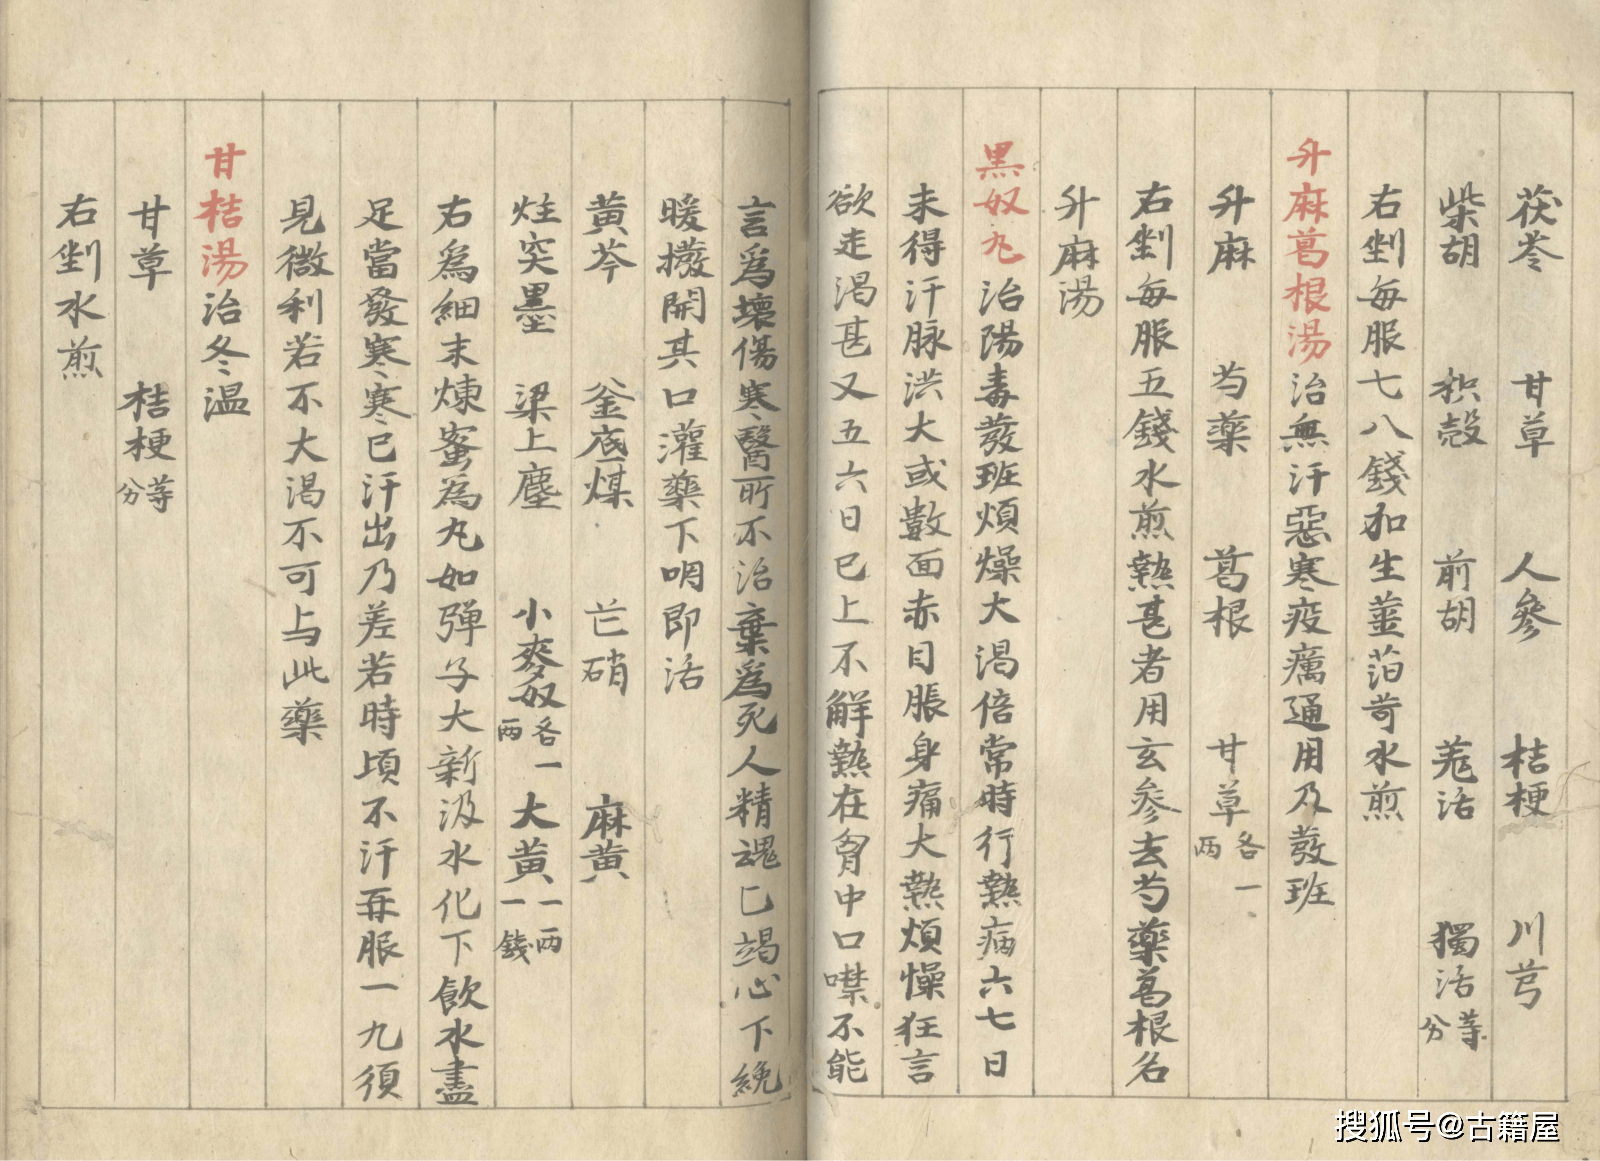 茯苓 甘草 人參 桔梗 川芎
柴胡 枳殼 前胡 羌活 獨活等分
右剉每服七八錢加生薑萡苛水煎
升麻葛根湯治無汗惡寒疫癘通用及發班
升麻 芍藥 葛根 甘草各一兩
右剉每服五錢水煎熱甚者用玄參去芍藥葛根名
升麻湯
黑奴丸治陽毒發班煩燥大渴倍常時行熱病六七日
未得汗脉洪大或數面赤目脹身痛大熱煩懆狂言
欲走渴甚又五六日已上不觧熱在胷中口噤不能
言為壞傷寒醫所不治棄為死人精魂已竭心下繞
暖撥開其口灌藥下咽即活
黃芩 釜底煤 芒硝 麻黃
灶突墨 梁上塵 小麥奴各一兩 大黃一兩一錢
右為細末煉蜜為丸如彈子大新汲水化下飲水盡
足當發寒寒已汗出乃差若時頃不汗再服一丸須
見微利若不大渴不可与此藥
甘桔湯治冬温
甘草 桔梗等分
右剉水煎
搜狐号@古籍屋